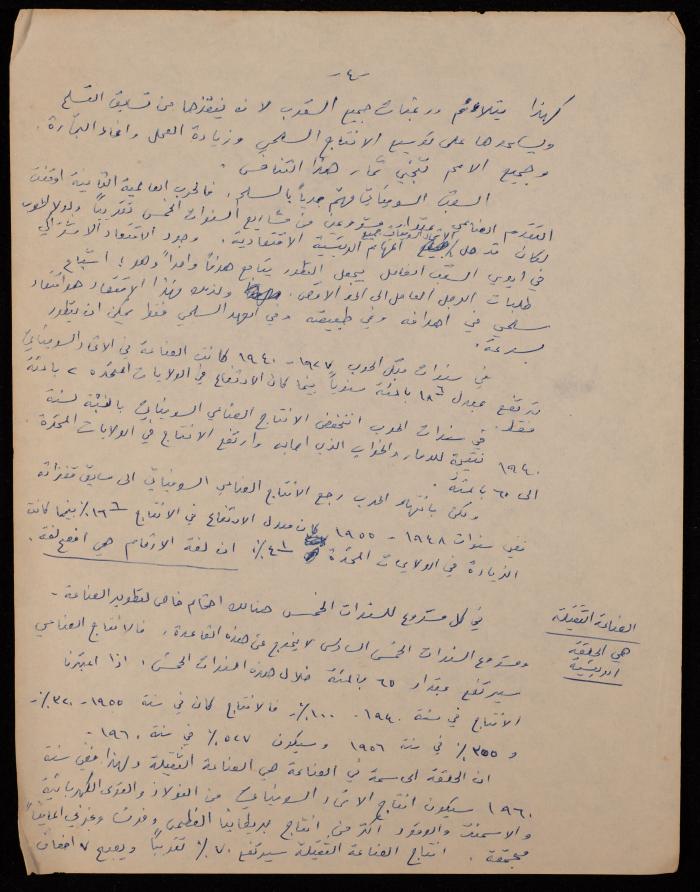 -٤-
كهذا يتلائم ورغبات جميع الشعوب لانه ينقذها من تسابق التسلح
ويساعدها على توسيع الانتاج السلمي وزيادة العمل وانماء التجارة.
وجميع الامم تجني ثمار هذا التنافس.
الشعب السوفياتي مهتم جدياً بالسلم. فالحرب العالمية الثانية اوقفت
التقدم الصناعي بمقدار مشروعين من مشاريع السنوات الخمس تقريباً ولولا الحرب
لكان قد حل الاتحاد السوفياتي جميع المهام الرئيسية الاقتصادية. وجود الاقتصاد الاشتراكي
في ايدي الشعب العامل يجعل التطور يتابع هدفاً واحداً وهو: اشباع
طلبات الرجل العامل الى الحد الاقصى. ولذلك فهذا الاقتصاد هو اقتصاد
سلمي في اهدافه وفي طبيعته وفي العهد السلمي فقط يمكن ان يتطور
بسرعة.
في سنوات قبل الحرب ١٩٢٧ - ١٩٤٠ كانت الصناعة في الاتحاد السوفياتي
ترتفع بمعدل ١٨ بالمئة سنوياً بينما كان الارتفاع في الولايات المتحدة ٢ بالمئة
فقط. في سنوات الحرب انخفض الانتاج الصناعي السوفياتي بالنسبة لسنة
١٩٤٠ نتيجة للدمار والخراب الذي اصابه وارتفع الانتاج في الولايات المتحدة
الى ٦٥ بالمئة.
ولكن بانتهاء الحرب رجع الانتاج الصناعي السوفياتي الى سابق قفزاته
ففي سنوات ١٩٤٨ - ١٩٥٥ كان معدل الارتفاع في الانتاج ١٦٪ بينما كانت
الزيادة في الولايات المتحدة ٤٪. ان لغة الارقام هي افصح لغة.
الصناعة الثقيلة
هي الحلقة
الرئيسية
في كل مشروع للسنوات الخمس هنالك اهتمام خاص لتطوير الصناعة -
ومشروع السنوات الخمس السادس لا يخرج عن هذه القاعدة، فالانتاج الصناعي
سيرتفع بمقدار ٦٥ بالمئة خلال هذه السنوات الخمس، اذا اعتبرنا
الانتاج في سنة ١٩٤٠ - ١٠٠٪ فالانتاج كان في سنة ١٩٥٥ - ٣٢٠٪
و ٣٥٥٪ في سنة ١٩٥٦ وسيكون ٥٢٧٪ في سنة ١٩٦٠ -
ان الحلقة الحاسمة في الصناعة هي الصناعة الثقيلة ولهذا ففي سنة
١٩٦٠ سيكون انتاج الاتحاد السوفياتي من الفولاذ والقوى الكهربائية
والاسمنت والوقود اكثر من انتاج بريطانيا العظمى وفرنسا وغربي المانيا
مجتمعة. انتاج الصناعة الثقيلة سيرتفع ٧٠٪ تقريباً ويصبح ٧ اضعاف